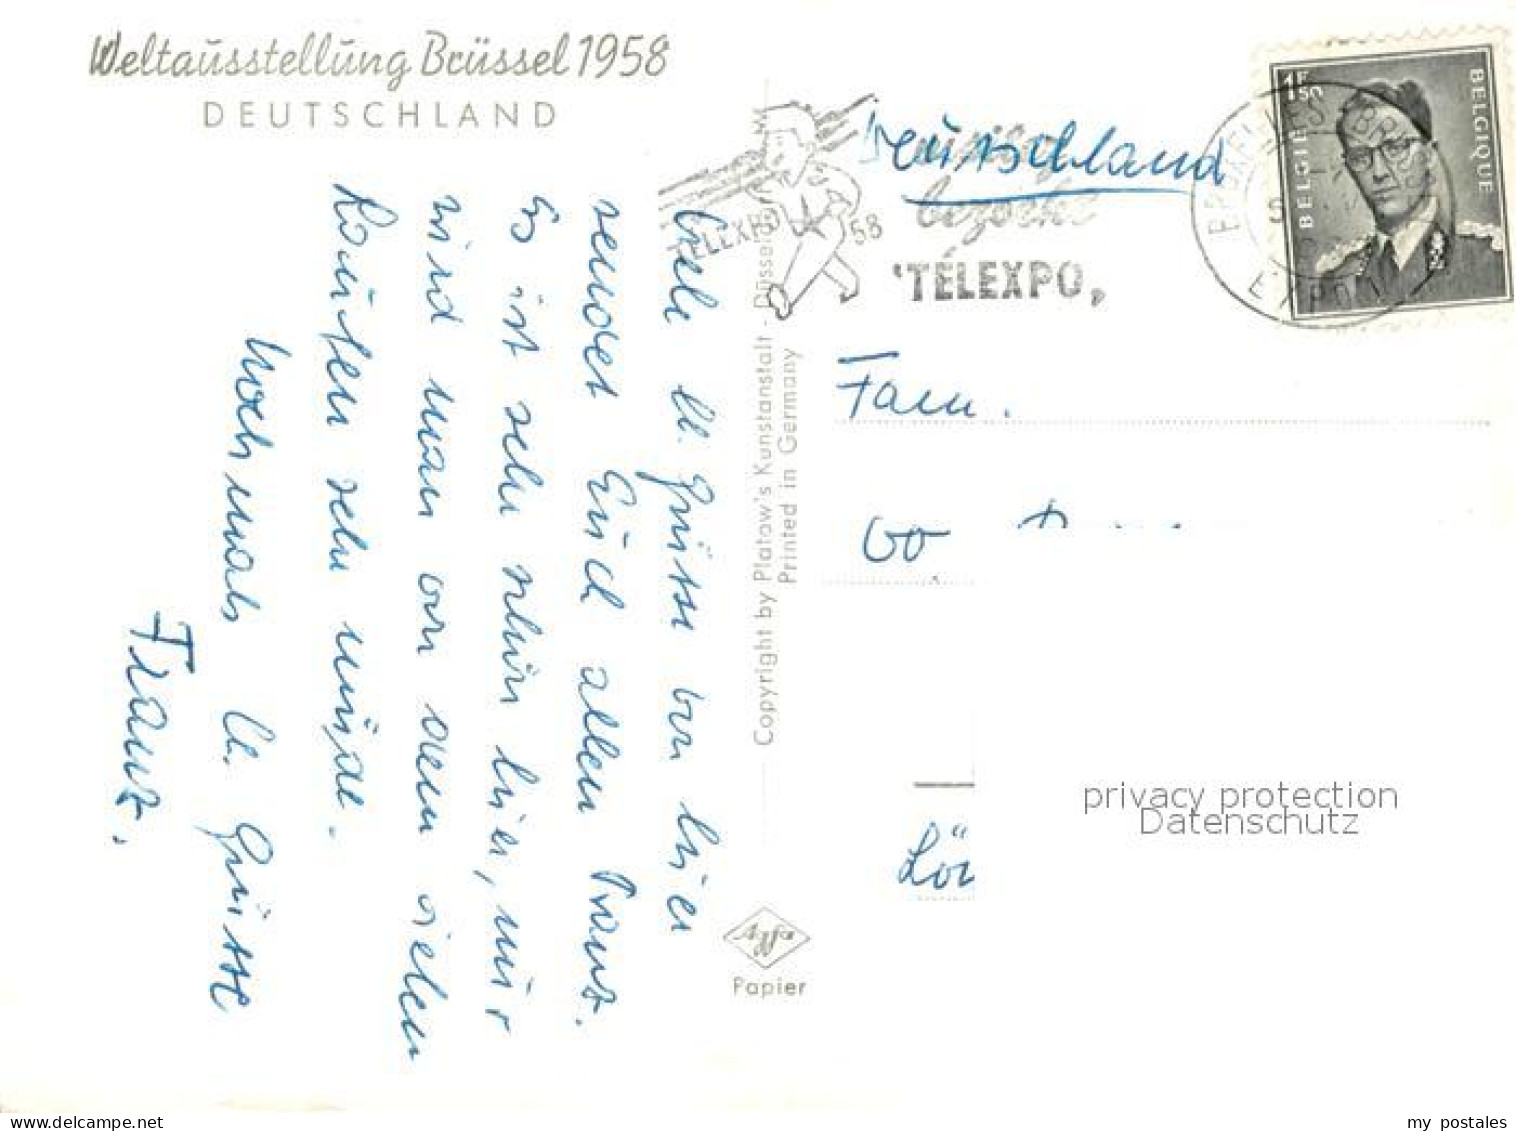 Weltausstellung Brüssel 1958
DEUTSCHLAND
Viele lb. Grüsse von hier
sendet Euch allen Franz.
Es ist sehr schön hier, nur
wird man von dem vielen
Laufen sehr müde.
Nochmals lb. Grüsse
Franz.
Copyright by Platow's Kunstanstalt - Düsseldorf
Printed in Germany
Agfa
Papier
TELEXPO 58
bezoekt
'TELEXPO,
Deutschland
1F50
BELGIE BELGIQUE
EXPO
Fam.
Go
Lör
privacy protection
Datenschutz
my postales